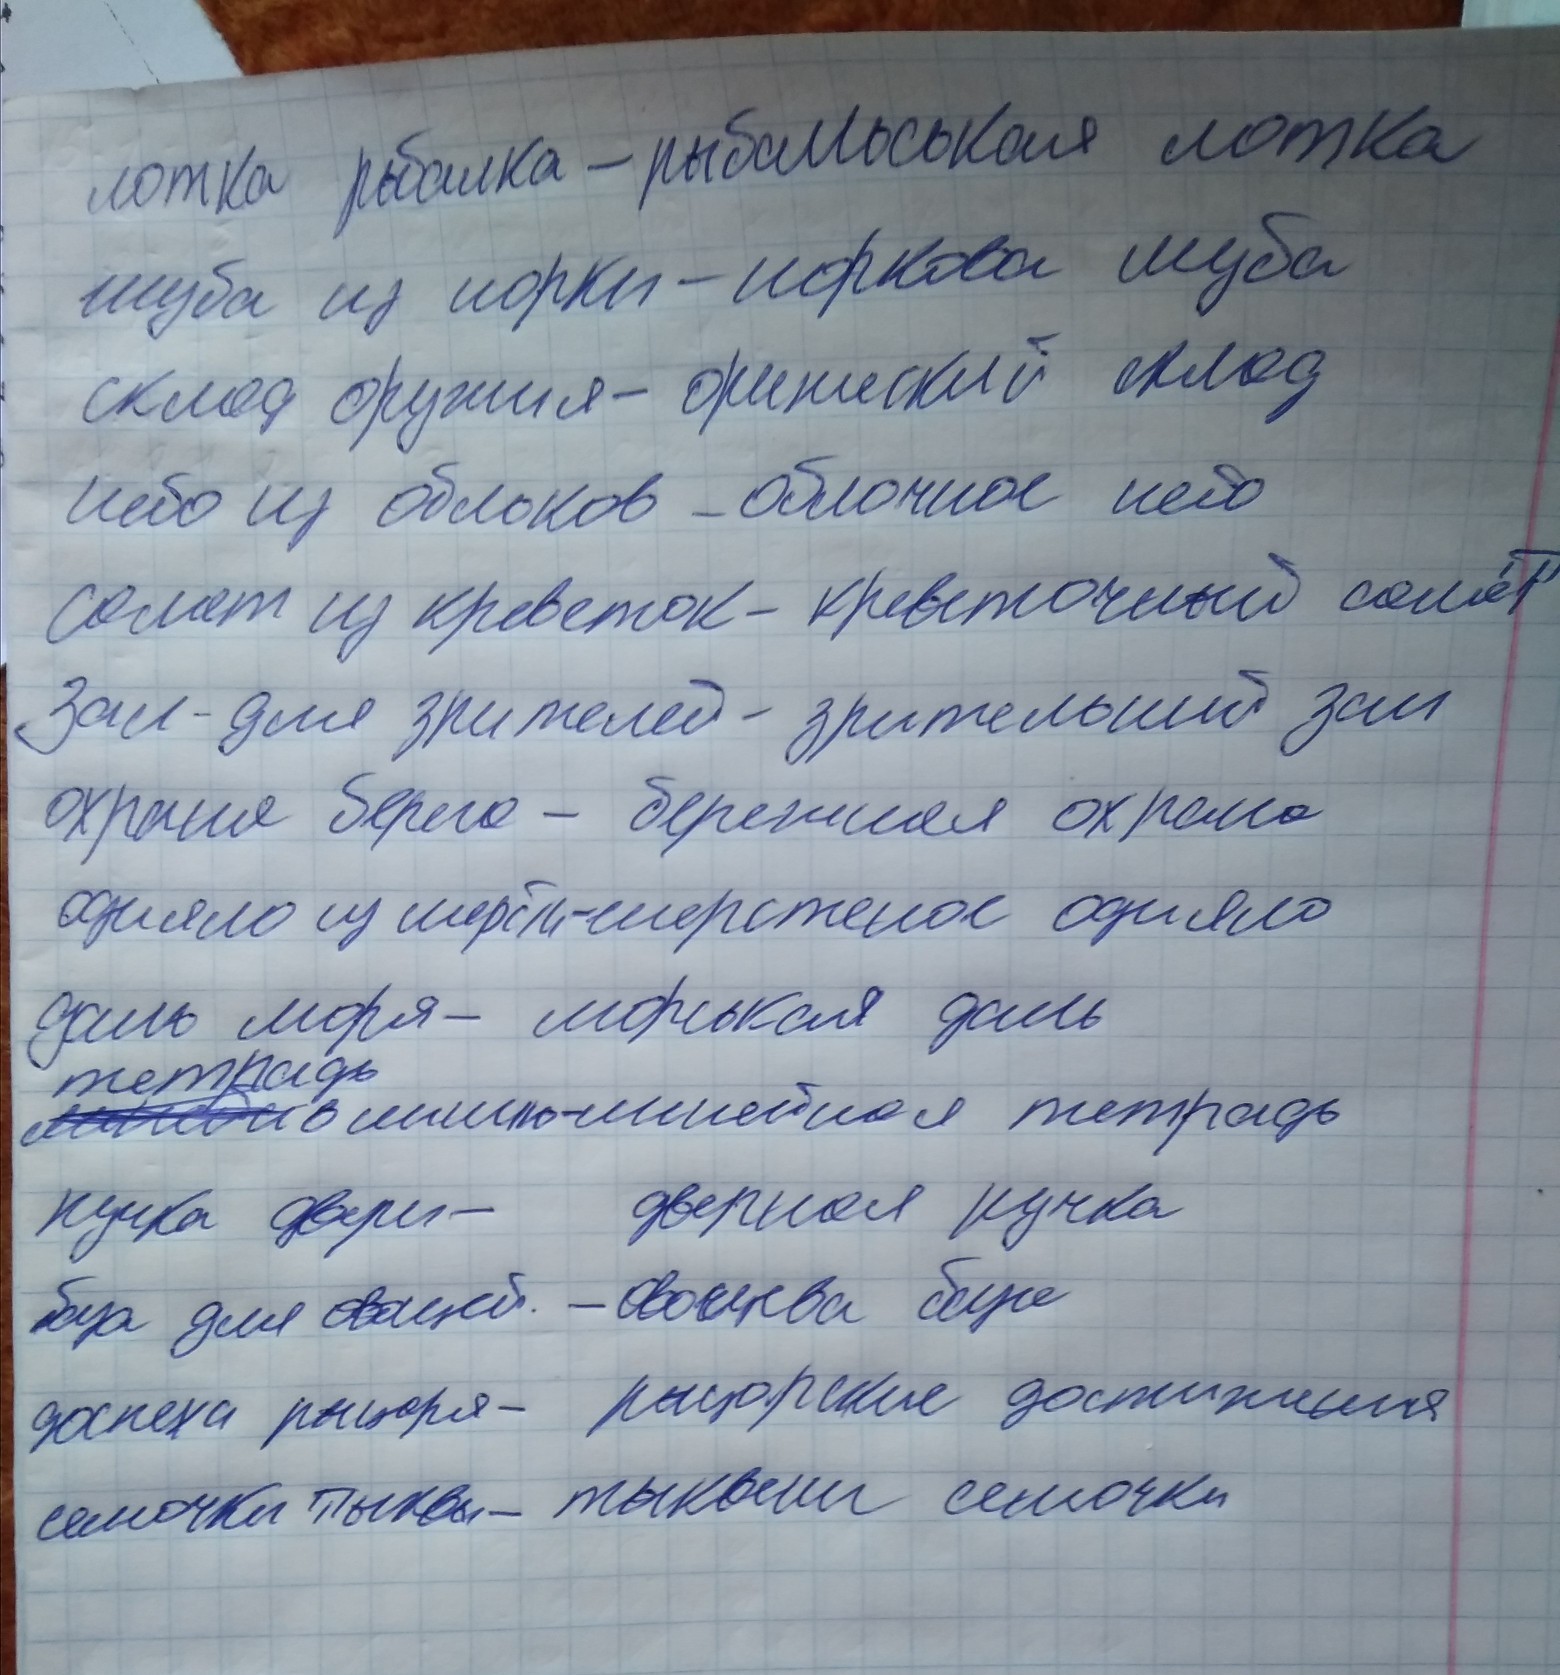 лотка рыбалка – рыбальськая лотка
шуба из норки – норкова шуба
склад оружия – оринеский склад
небо из облоков – облочное небо
салат из креветок – креветочный салат
Зал-для зрителей – зрительний зал
охрания берега – бережная охрана
одияло из шерсти – шерстеное одияло
даль моря – морськая даль
тетрадь
в линию – линейная тетрадь
ручка двери – дверная ручка
база для овощей. – овощква база
доспеха рыцаря – рыцарские достижения
семочки тыквы – тыквени семочки